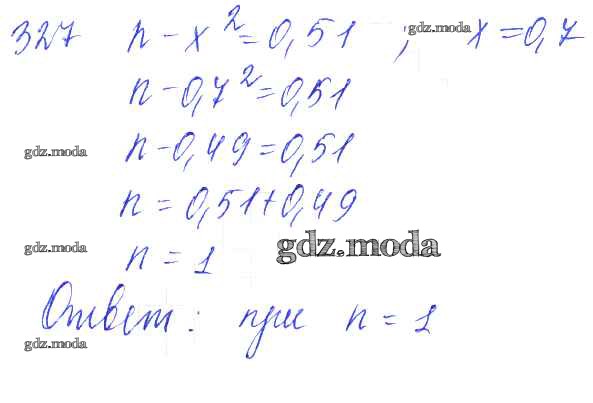 327 n - x² = 0,51 ; gdz.moda x = 0,7
n - 0,7² = 0,51
gdz.moda n - 0,49 = 0,51
n = 0,51 + 0,49
gdz.moda n = 1 gdz.moda
Ответ: при n = 1
gdz.moda